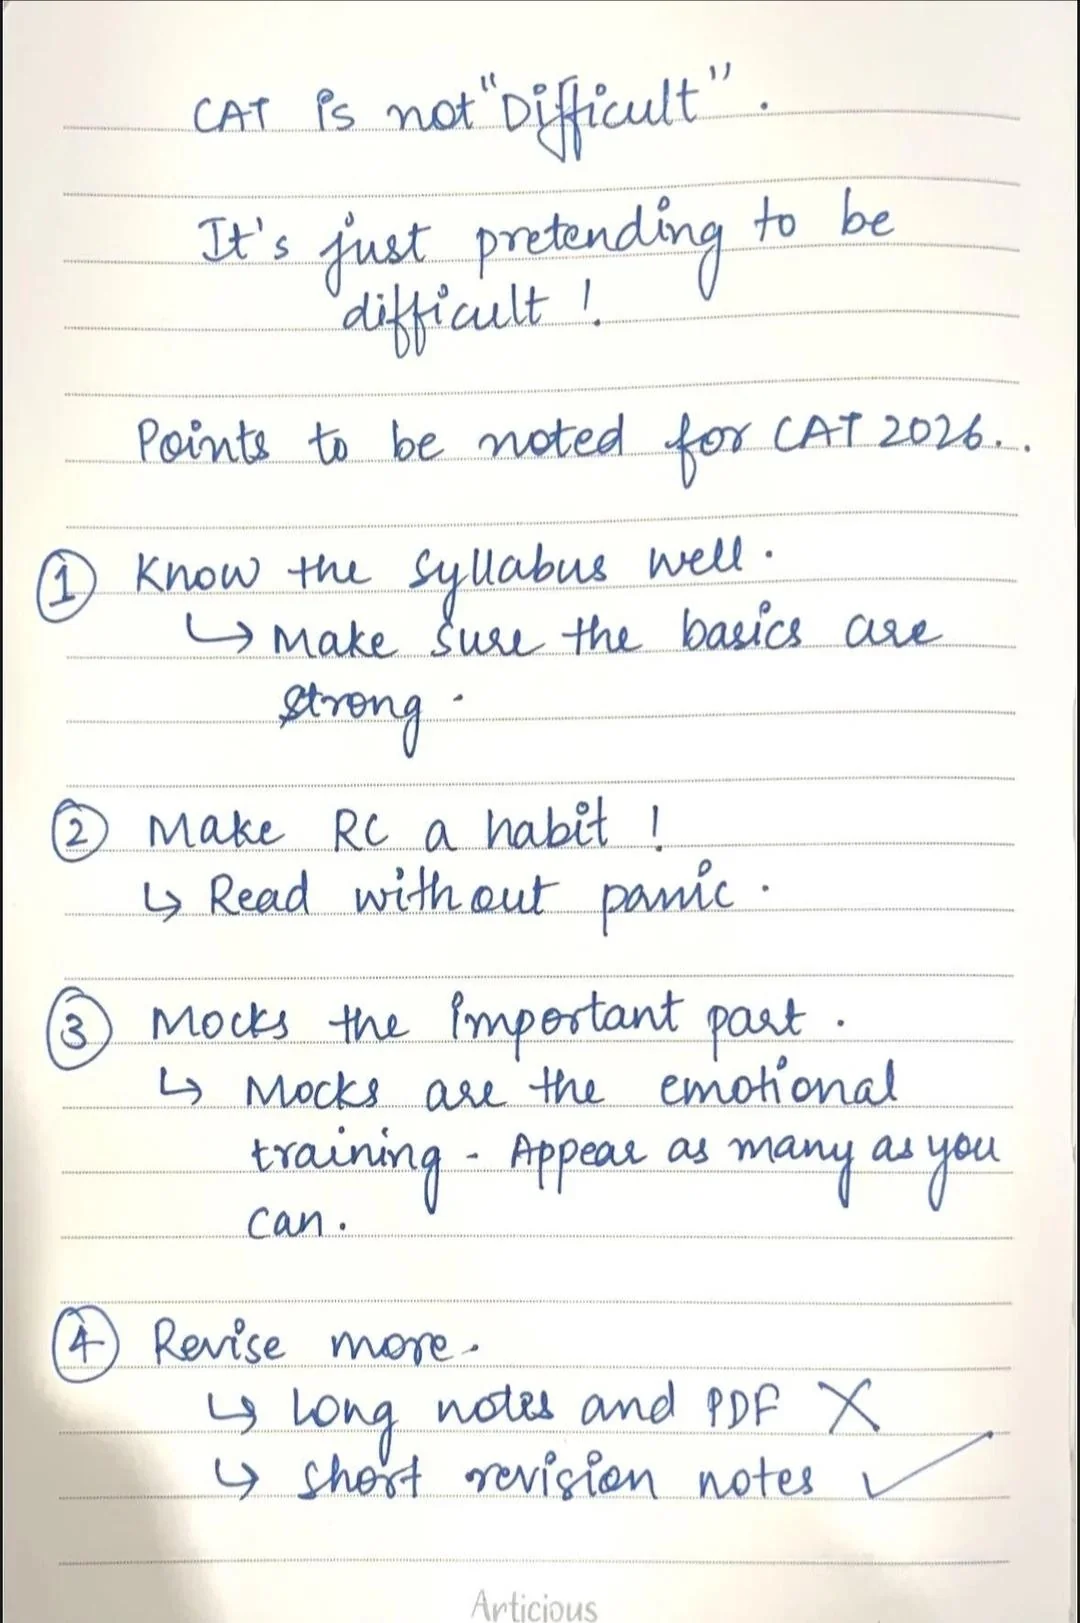 CAT is not "Difficult".
It's just pretending to be
difficult!
Points to be noted for CAT 2026..
① Know the syllabus well.
↳ Make sure the basics are
strong.
② Make RC a habit!
↳ Read without panic.
③ Mocks the important part.
↳ Mocks are the emotional
training - Appear as many as you
can.
④ Revise more.
↳ Long notes and PDF X
↳ short revision notes ✓
Articious